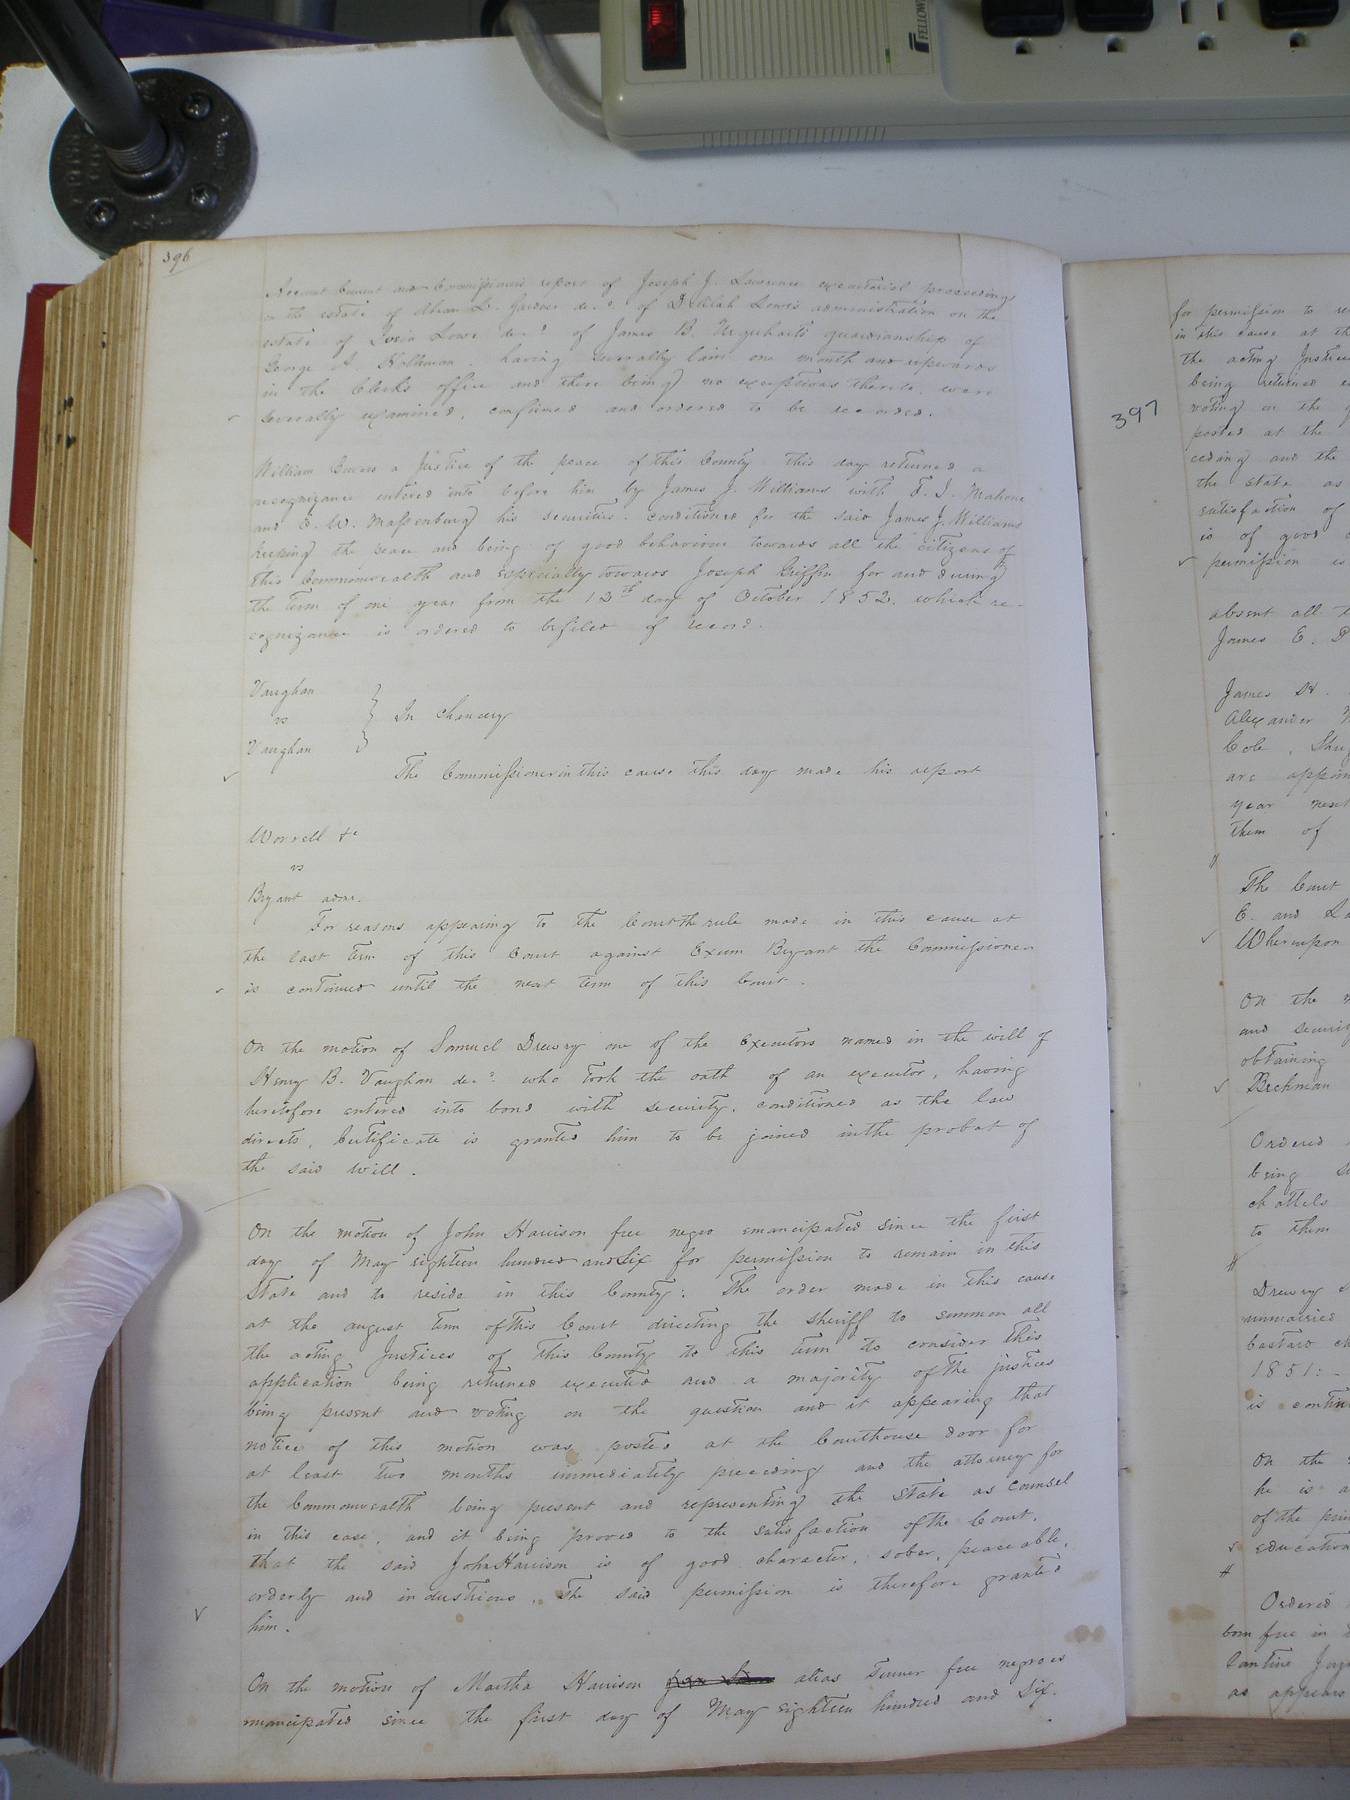 396
Account Current and Commissioners report of Joseph J. Lawrence executorial proceeding
on the estate of Abram L. Gardner decd. of Delilah Lowe's administration on the
estate of Lowe decd. of James B. Urquhart's guardianship of
George A. Holleman. having severally lain one month and upwards
in the Clerks office and there being no exceptions thereto, were
severally examined, confirmed and ordered to be recorded.
William a Justice of the peace of this County this day returned a
recognizance entered into before him by James J. Williams with F. J. Mahone
and E. W. Massenburg his securities. conditioned for the said James J. Williams
keeping the peace and being of good behaviour towards all the citizens of
this Commonwealth and especially towards Joseph Griffin for and during
the term of one year from the 13th day of October 1852. which re-
cognizance is ordered to be filed of record.
Vaughan
vs } In chancery
Vaughan
The Commissioner in this cause this day made his report
Worrell &c
vs
Bryant admr.
For reasons appearing to the Court the rule made in this cause at
the last term of this Court against Exum Bryant the Commissioner
is continued until the next term of this Court.
On the motion of Samuel Drewry one of the Executors named in the will of
Henry B. Vaughan decd. who took the oath of an executor, having
heretofore entered into bond with security, conditioned as the law
directs, Certificate is granted him to be joined in the probat of
the said will.
On the motion of John Harrison free negro emancipated since the first
day of May eighteen hundred and Six for permission to remain in this
State and to reside in this County: The order made in this cause
at the august term of this Court directing the sheriff to summon all
the acting Justices of this County to this term to consider this
application being returned executed and a majority of the justices
being present and voting on the question and it appearing that
notice of this motion was posted at the Courthouse door for
at least two months immediately preceeding and the attorney for
the Commonwealth being present and representing the State as counsel
in this case, and it being proved to the satisfaction of the Court,
that the said John Harrison is of good character, sober, peaceable,
orderly and industrious, The said permission is therefore granted
him.
On the motion of Martha Harrison alias Turner free negroes
emancipated since the first day of May eighteen hundred and Six.
397
for permission to re
in this cause at th
the acting Justice
being returned e
voting on the q
posted at the
ceding and the
the state as
satisfaction of
is of good c
permission is
absent all t
James E. P
James W.
Alexander
Cole,
are appoin
year next
them of
The Court
E. and La
Whereupon
On the m
and securi
obtaining
Beckman
Ordered
being
chattels
to them
Drewry
unmarried
bastard ch
1851: -
is continu
On the
he is a
of the
education
Ordered
born free in
as appears